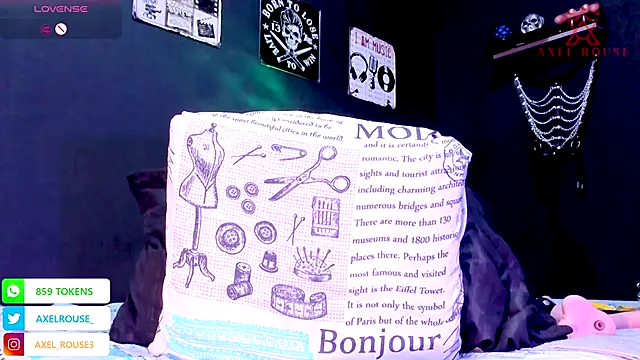 LOVENSE
BORN TO LOSE
13
LIVE TO WIN
I AM MUSIC
AXEL ROUSE
of the most beautiful cities in the world.
considered to be
MOD
and it is certainly
romantic. The city is full of
sights and tourist
including charming
numerous bridges and
There are more than 130
museums and 1800 historic
places there. Perhaps the
most famous and visited
sight is the Eiffel Tower.
It is not only the symbol
of Paris but of the whole
Bonjour
859 TOKENS
AXELROUSE_
AXEL_ROUSE3